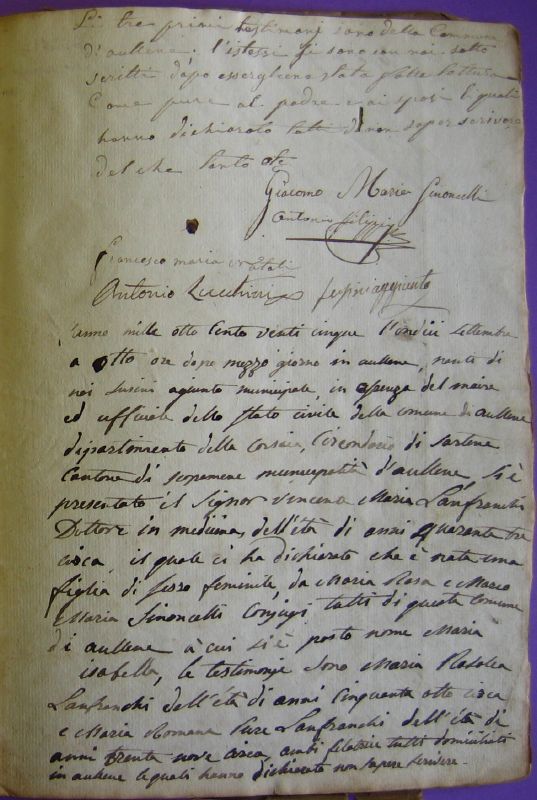 Li tre primi testimoni sono della Commune
d'aullene. l'istessi si sono con noi sotto
scritti dopo essergliene stata fatta lettura
Come pure al padre e ai sposi li quali
hanno dichiarato tutti di non saper scrivere
del che tanto
Giacomo Maria Simoncelli
Antonio filippi
francesco maria
Antonio Lucchini
L'anno mille otto Cento venti cinque l'ondici settembre
a otto ore dopo mezzo giorno in aullene, nanti di
noi Susini agiunto municipale, in assenza del maire
ed uffiziale dello stato civile della comune di aullene
dipartimento della Corsica, Circondario di Sartene
Cantone di scopamene municipalità d'aullene, si è
presentato il Signor Vincente Maria Lanfranchi
Dottore in medicina, dell'età di anni quaranta tre
circa, il quale ci ha dichiarato che è nata una
figlia di sesso feminile, da Maria Rosa e Marco
Maria Simoncelli Conjugi tutti di questa comune
di aullene à cui si è posto nome Maria
isabella, le testimonje sono Maria Rosolea
Lanfranchi dell'età di anni Cinquanta otto circa
e Maria Romana Pure Lanfranchi dell'età di
anni trenta nove circa, ambi filatrice tutti domiciliati
in aullene le quali hanno dichiarato non sapere scrivere.